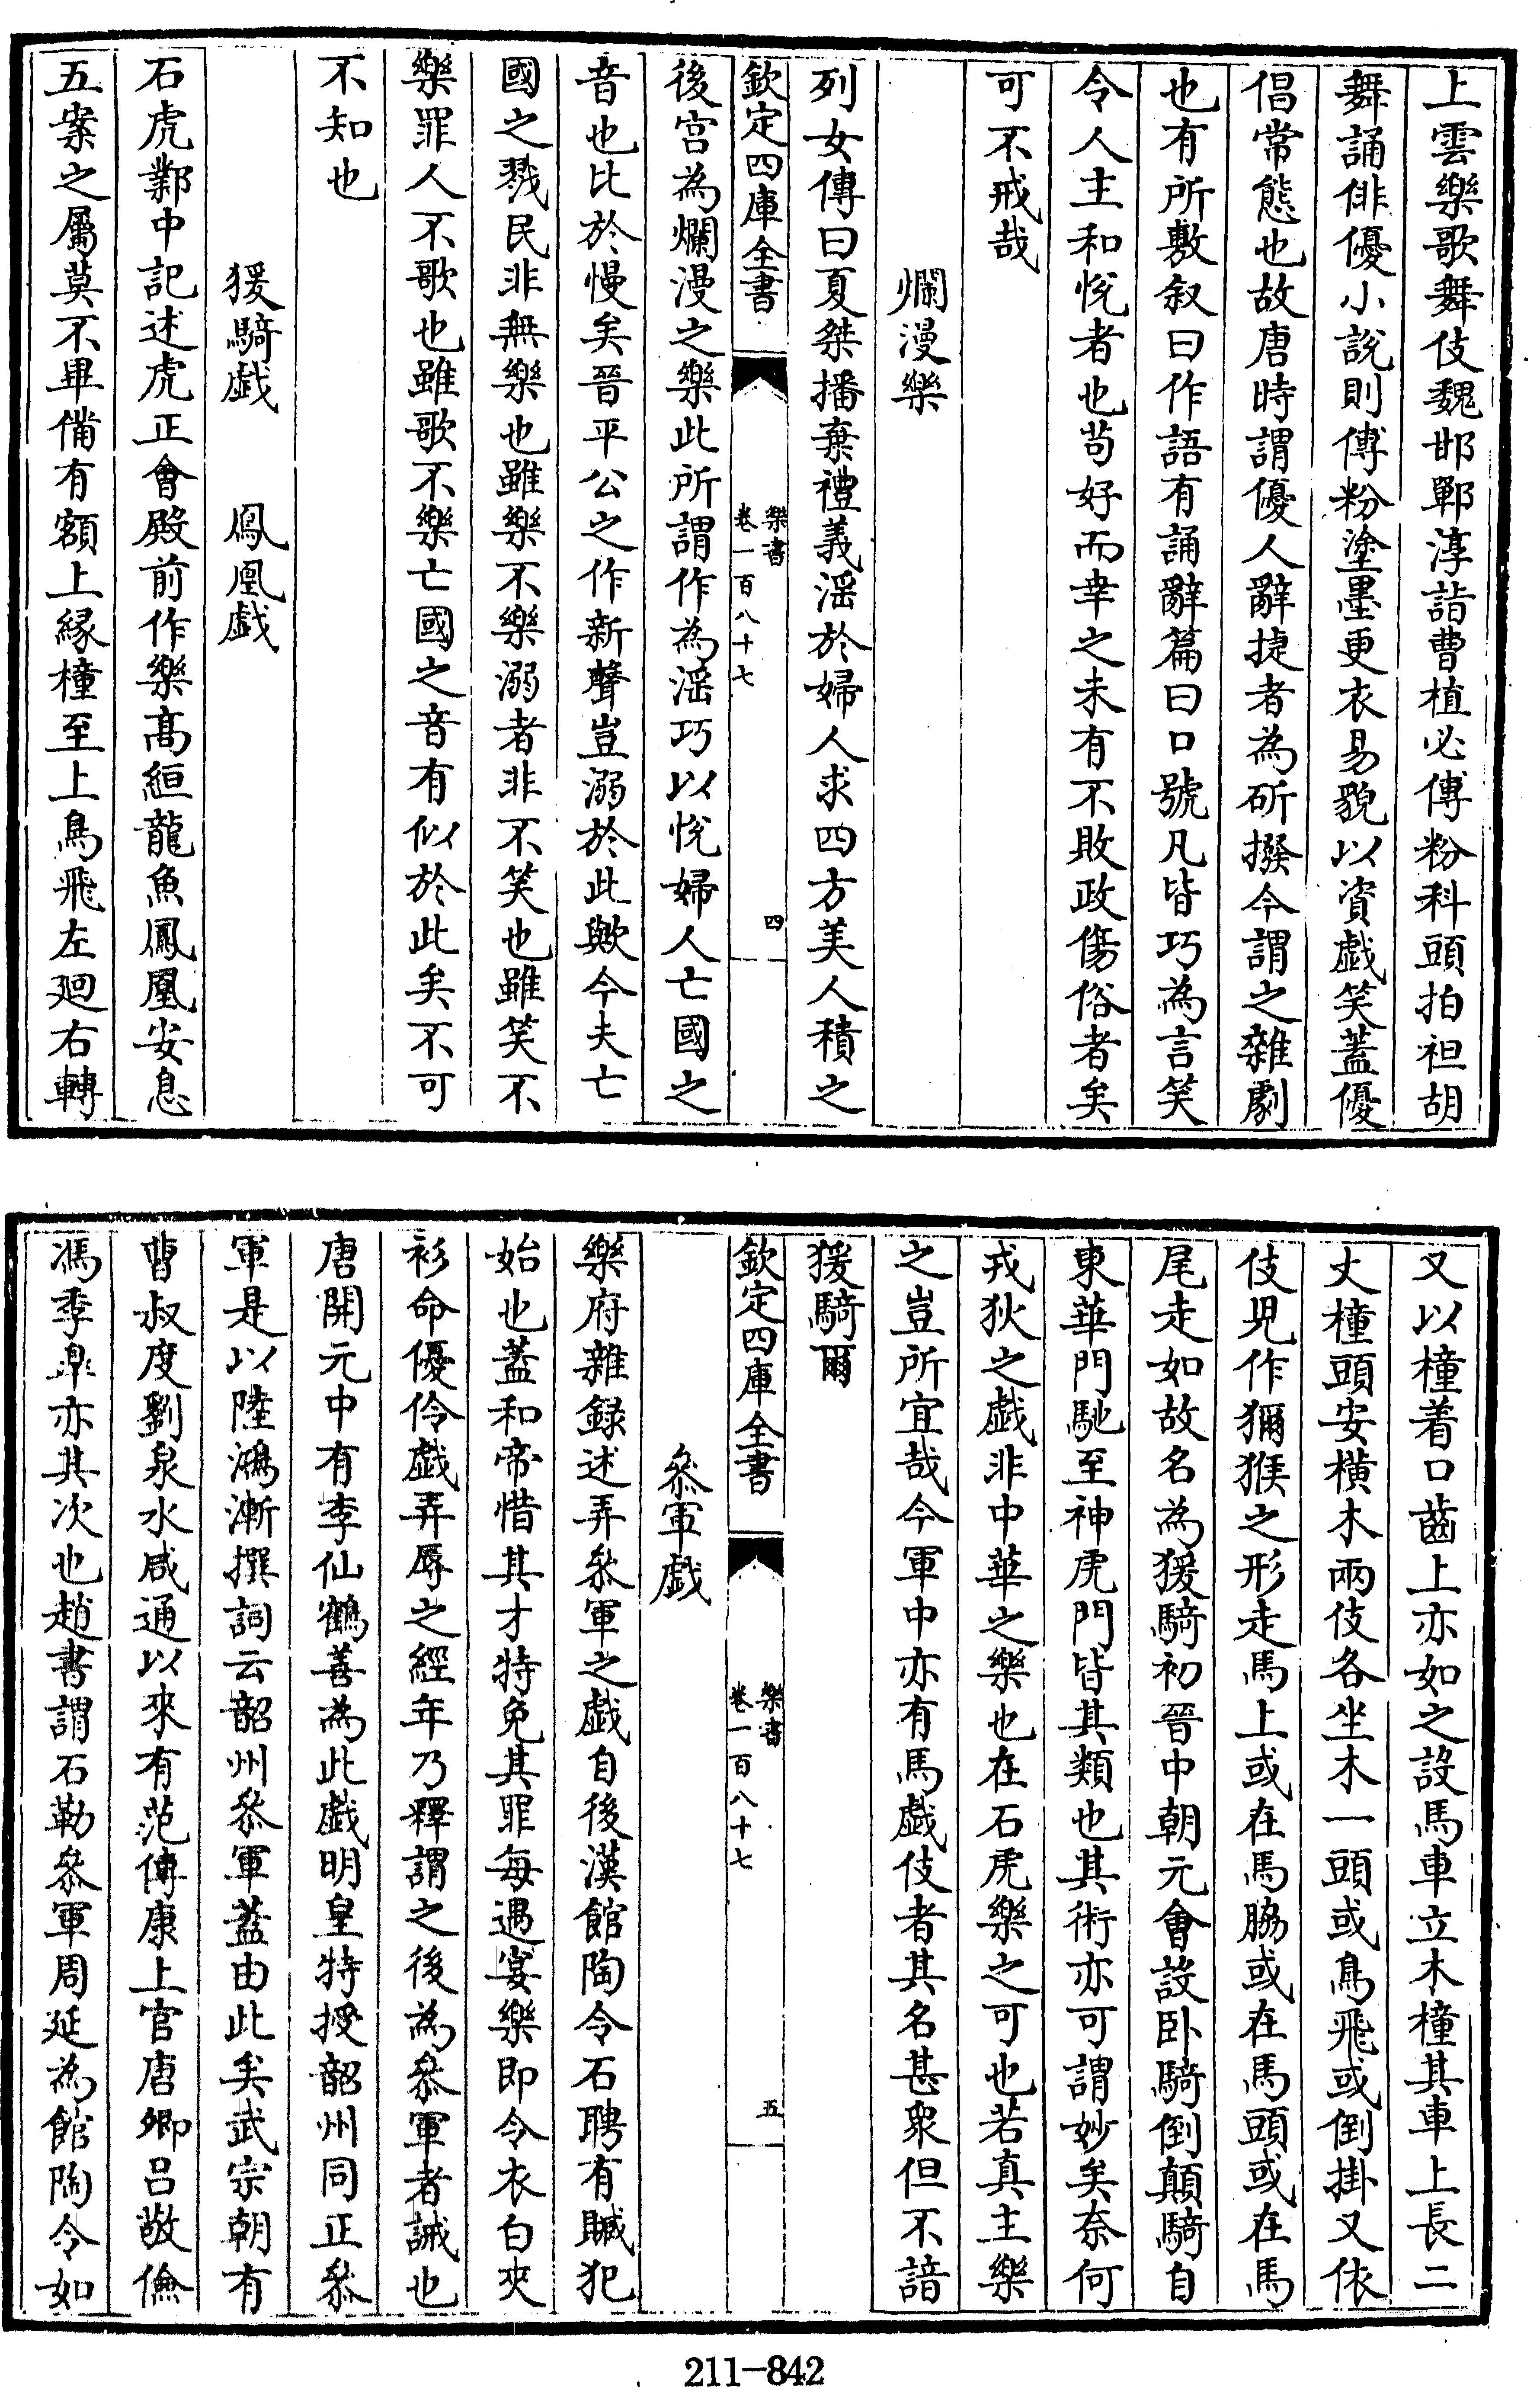 上雲樂歌舞伎魏邯鄲淳詣曹植必傅粉科頭拍袒胡
舞誦俳優小說則傅粉塗墨更衣易貌以資戯笑蓋優
倡常態也故唐時謂優人辭捷者為斫撥今謂之雜劇
也有所敷叙曰作語有誦辭篇曰口號凡皆巧為言笑
令人主和悅者也苟好而幸之未有不敗政傷俗者矣
可不戒哉
爛漫樂
列女傳曰夏桀播棄禮義滛於婦人求四方美人積之
欽定四庫全書
樂書
卷一百八十七
四
後宫為爛漫之樂此所謂作為滛巧以悅婦人亡國之
音也比於慢矣晉平公之作新聲豈溺於此歟今夫亡
國之戮民非無樂也雖樂不樂溺者非不笑也雖笑不
樂罪人不歌也雖歌不樂亡國之音有似於此矣不可
不知也
猨騎戯　鳳凰戯
石虎鄴中記述虎正會殿前作樂高絙龍魚鳳凰安息
五案之屬莫不畢備有額上緣橦至上鳥飛左廻右轉
又以橦着口齒上亦如之設馬車立木橦其車上長二
丈橦頭安橫木兩伎各坐木一頭或鳥飛或倒掛又依
伎児作獼猴之形走馬上或在馬脇或在馬頭或在馬
尾走如故名為猨騎初晉中朝元會設卧騎倒顛騎自
東華門馳至神虎門皆其類也其術亦可謂妙矣奈何
戎狄之戯非中華之樂也在石虎樂之可也若真主樂
之豈所宜哉今軍中亦有馬戯伎者其名甚衆但不諳
猨騎爾
欽定四庫全書
樂書
卷一百八十七
五
叅軍戯
樂府雜録述弄叅軍之戯自後漢館陶令石聃有贓犯
始也蓋和帝惜其才特免其罪每遇宴樂即令衣白夾
衫命優伶戯弄辱之經年乃釋謂之後為叅軍者誡也
唐開元中有李仙鶴善為此戯明皇特授韶州同正叅
軍是以陸鴻漸撰詞云韶州叅軍蓋由此矣武宗朝有
曹叔度劉泉水咸通以來有范傳康上官唐卿吕敬儉
馮季臯亦其次也趙書謂石勒叅軍周延為館陶令如
211-842